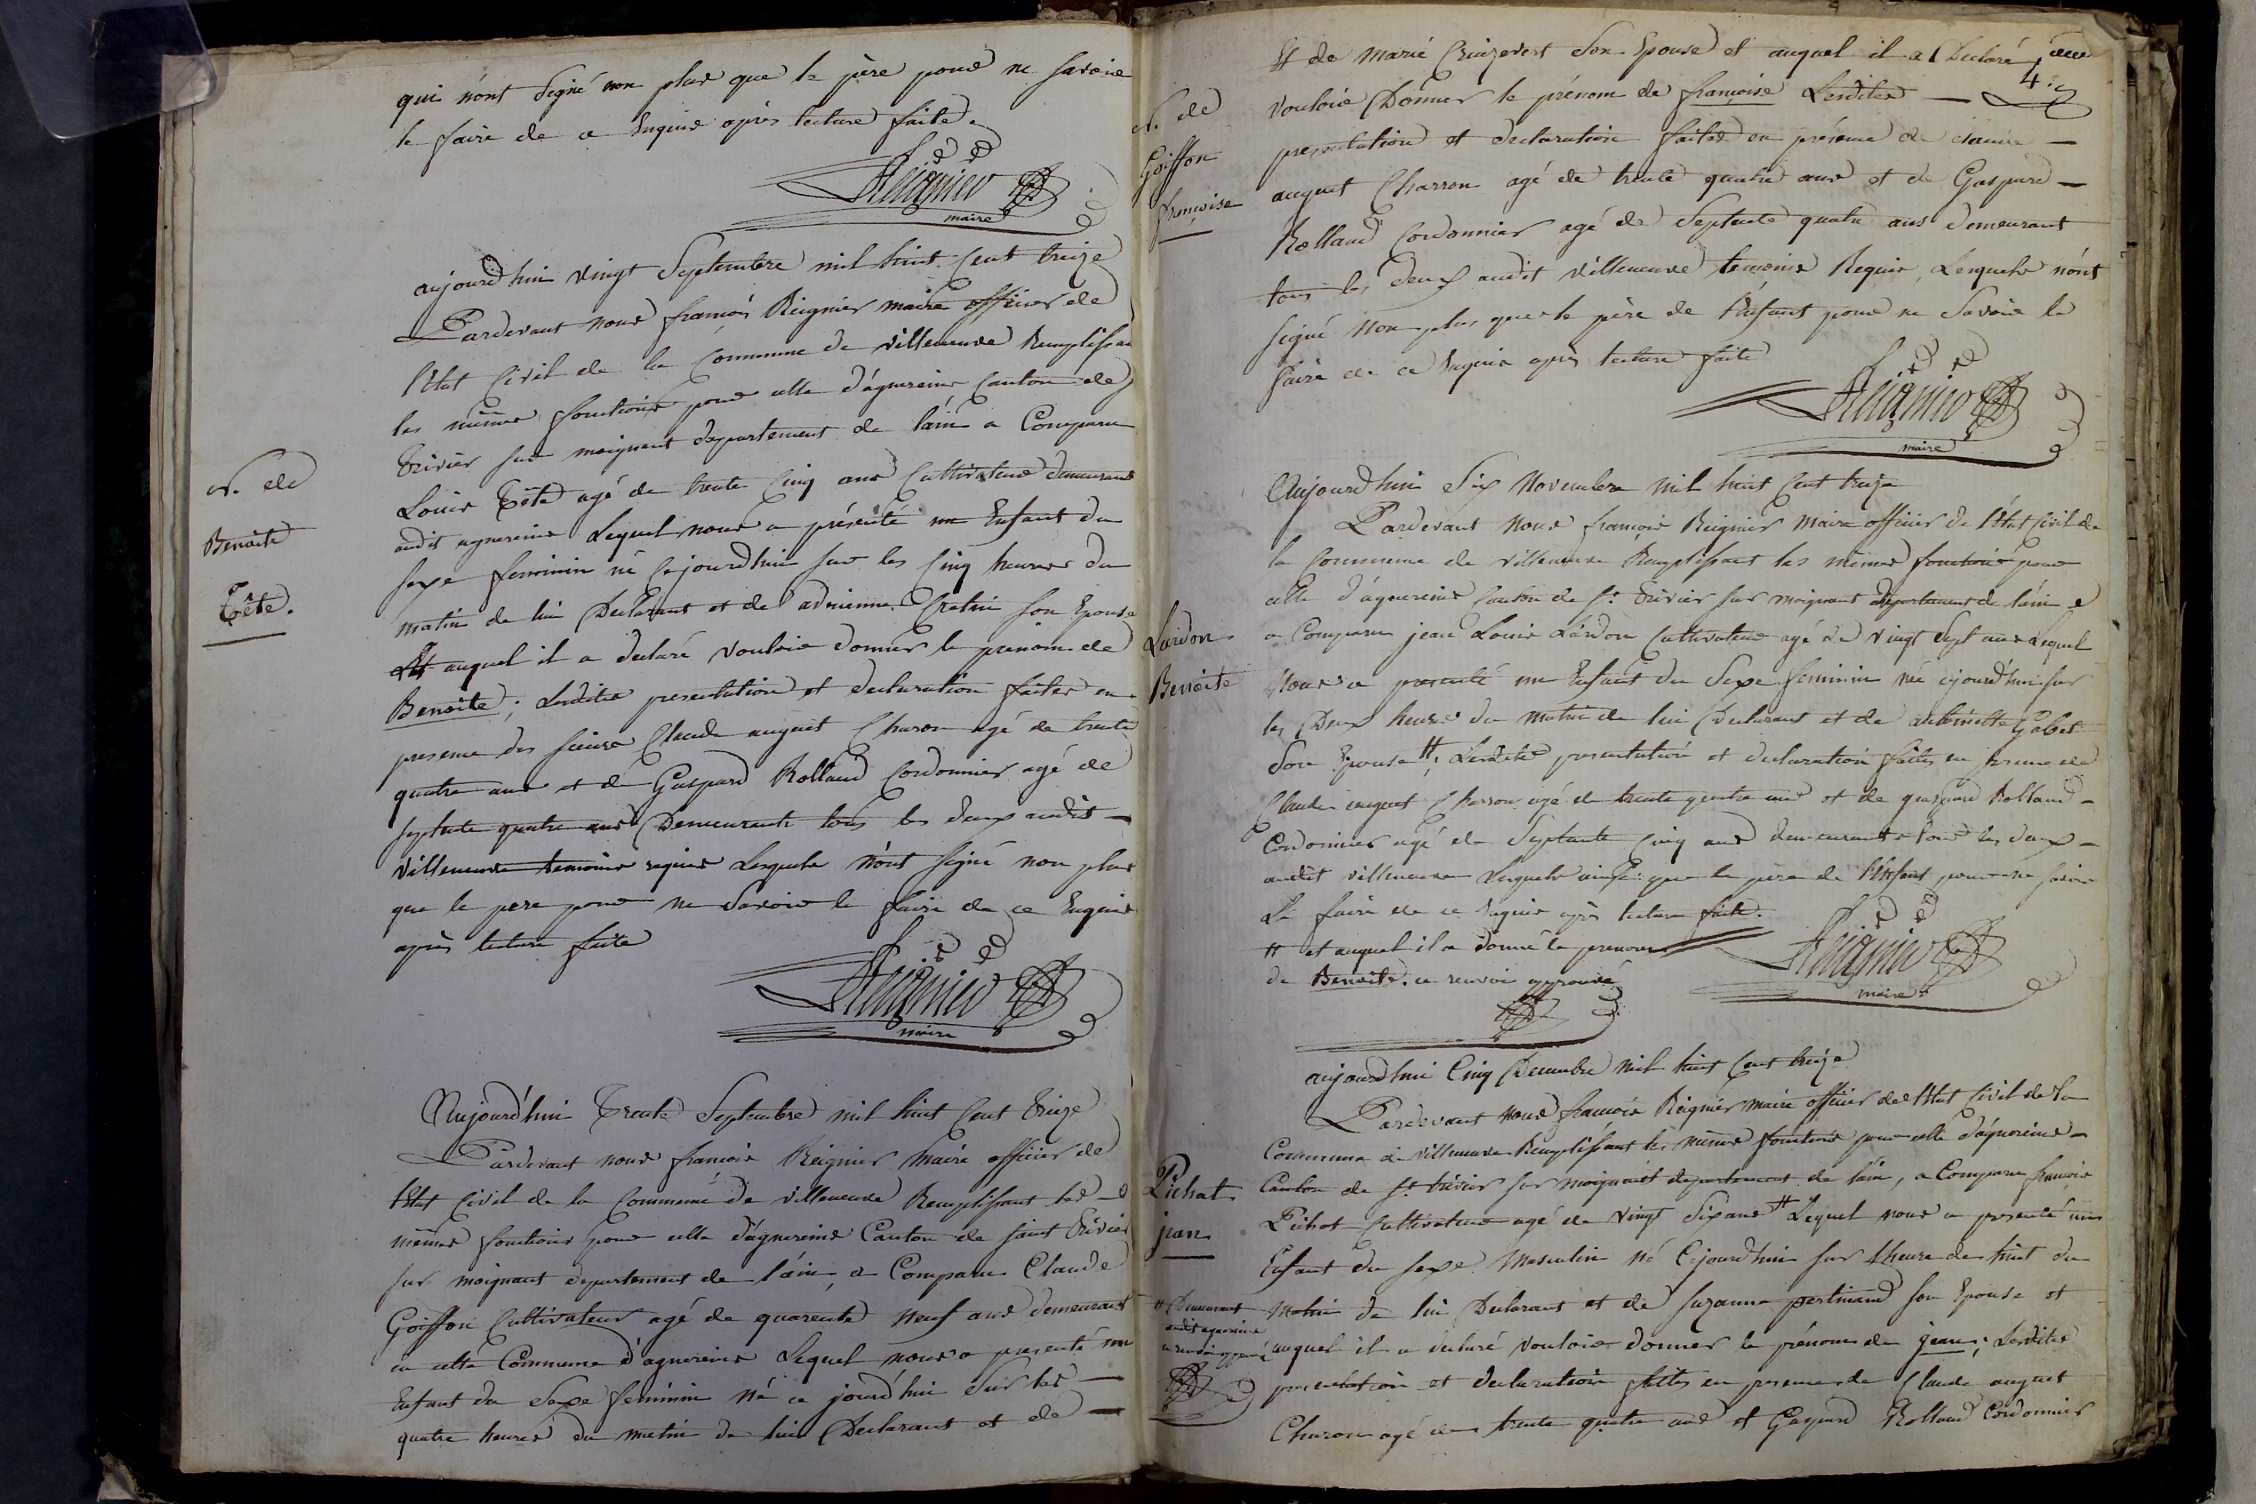 qui n'ont Signé non plus que le père pour ne savoir
le faire de ce Enquis après lecture faite.
Reignier
maire
N. de
Benoite
Tête.
aujourdhui vingt Septembre mil huit Cent treize
Pardevant nous françois Reignier maire officier de
l'Etat Civil de la Commune de villeneuve Remplissant
les mêmes fonctions pour celle d'agnereins Canton de
trivier sur moignant departement de l'ain a Comparu
Louis Tête agé de trente Cinq ans Cultivateur demeurant
audit agnereins Lequel nous a présenté un Enfant du
sexe feminin né Cejourdhui sur les Cinq heures du
matin de lui Declarant et de adrienne Cretin son Epouse
auquel il a declaré vouloir donner le prenom de
Benoite; Lesdites presentation et declaration faites en
presence des sieurs Claude auguet Charon agé de trente
quatre ans et de Gaspard Rolland Cordonnier agé de
septante quatre ans Demeurants tous les deux audit
villeneuve temoins requis Lesquels n'ont signé non plus
que le pere pour ne Savoir le faire de ce Enquis
après lecture faite
Reignier
maire
Aujourd'hui Trente Septembre mil huit Cent treize
Pardevant nous francois Reignier maire officier de
l'Etat Civil de la Commune de villeneuve Remplissant les
mêmes fonctions pour celle d'agnereins Canton de saint Trivier
sur moignant departement de l'ain, a Comparu Claude
Goiffon Cultivateur agé de quarente neuf ans demeurant
en cette Commune d'agnereins Lequel nous a presenté un
Enfant du Sexe feminin Né ce jourd'hui Sur les
quatre heures du matin de lui Declarant et de
4
N. de
Goiffon
françoise
et de Marie Son Epouse et auquel il a Declaré
vouloir Donner le prénom de françoise Lesdites
presentation et declaration faites en présence de
auguet Charron agé de trente quatre ans et de Gaspard
Rolland Cordonnier agé de Septente quatre ans demeurant
tous les deux audit villeneuve temoins Requis, Lesquels n'ont
signé Non plus que le père de l'Enfant pour ne Savoir le
faire de ce Enquis après lecture faite
Reignier
maire
Lardon
Benoite
Aujourdhui Six Novembre mil huit Cent treize
Pardevant nous françois Reignier maire officier de l'Etat Civil de
la Commune de villeneuve Remplissant les mêmes fonctions pour
celle d'agnereins Canton de St. Trivier sur moignant departement de l'ain
a Comparu jean Louis Lardon Cultivateur agé de vingt Sept ans Lequel
Nous a presenté un Enfant du Sexe feminin né cejourd'hui sur
les Deux heures du Matin de lui Declarant et de antoinette Gabet
Son Epouse #; Lesdites presentation et declaration faites en presence de
Claude auguet Charron agé de trente quatre ans et de gaspard Rolland
Cordonnier agé de Septante Cinq ans demeurants tous les deux
audit villeneuve Lesquels ainsi que le père de l'Enfant pour ne savoir
Le faire de ce Enquis après lecture faite.
# et auquel il a donné le prenom
de Benoite. ce renvoi approuvé
Reignier
maire
Pichat
jean
aujourdhui Cinq Decembre mil huit Cent treize
Pardevant nous françois Reignier maire officier de l'Etat Civil de la
Commune de villeneuve Remplissant les mêmes fonctions pour celle d'agnereins
Canton de St. trivier sur moignant departement de l'ain, a Comparu françois
Pichat Cultivateur agé de vingt Six ans # Lequel nous a presenté un
Enfant du sexe Masculin né Cejourdhui sur l'heure de huit du
Matin de lui Declarant et de suzanne pertinand son Epouse et
auquel il a declaré vouloir donner le prénom de jean; Lesdites
presentation et declaration faites en presence de Claude auguet
Charon agé de trente quatre ans et Gaspard Rolland Cordonnier
# Demeurant
audit agnereins
ce renvoi approuvé